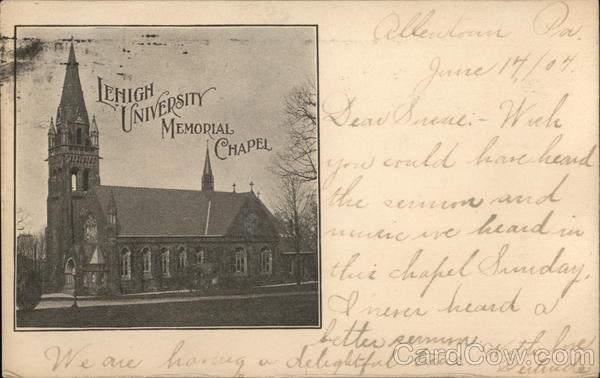 LEHIGH
UNIVERSITY
MEMORIAL
CHAPEL
Allentown Pa.
June 14/04.
Dear Susie:- Wish
you could have heard
the sermon and
music we heard in
this chapel Sunday.
I never heard a
better sermon
We are having a delightful time. With love
Gertrude
CardCow.com